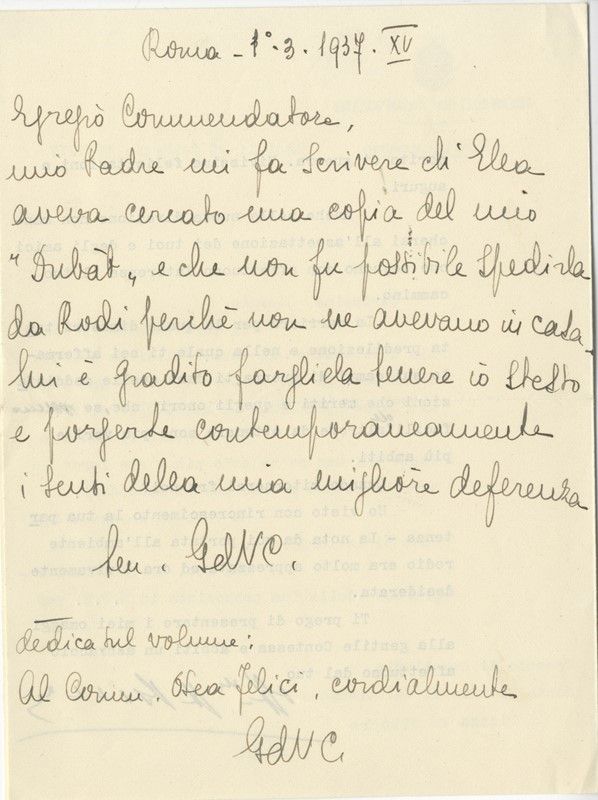 Roma - 1°. 3. 1937. XV
Egregio Commendatore,
mio Padre mi fa scrivere ch'Ella
aveva cercato una copia del mio
"Dubàt„ e che non fu possibile spedirla
da Rodi perchè non ne avevano in casa -
Mi è gradito fargliela tenere io stesso
e porgerLe contemporaneamente
i sensi della mia migliore deferenza
Ten. GdVC.
dedica sul volume:
Al Comm. Osea Felici, cordialmente
GdVC.